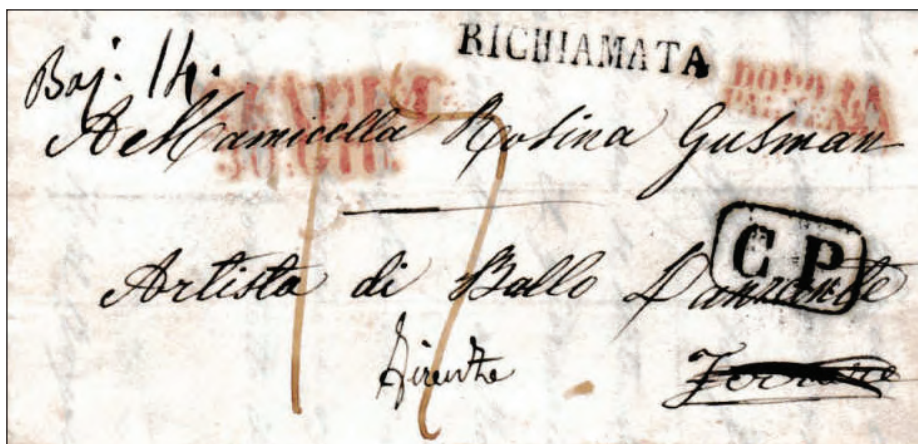 RICHIAMATA
Baj. 14.
DOPO LA
PARTENZA
A Mamicella Rosina Gusman
17
C P
Artista di Ballo Danzante
Firenze